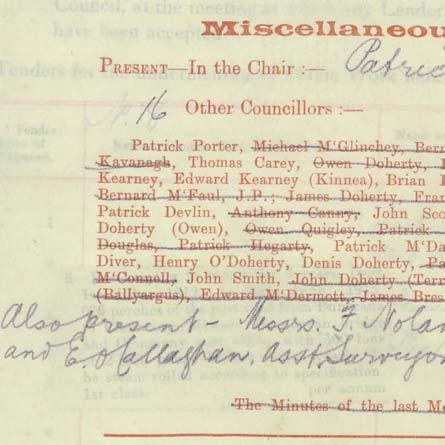 Council, at the meeting
have been accepted
Miscellaneou
PRESENT—In the Chair :— Patric
Tenders for the
16 Other Councillors :—
Patrick Porter, Michael M'Glinchey, Ber
Kavanagh, Thomas Carey, Owen Doherty,
Kearney, Edward Kearney (Kinnea), Brian
Bernard M'Faul, J.P.; James Doherty, Fran
Patrick Devlin, Anthony Canny, John Sco
Doherty (Owen), Owen Quigley, Patrick
Douglas, Patrick Hogarty, Patrick M'Da
Diver, Henry O'Doherty, Denis Doherty, Pa
M'Connell, John Smith, John Doherty (Terr
(Ballyargus), Edward M'Dermott, James Bres
Also present - Messrs. F. Nolan
and E. O'Callaghan, Asst. Surveyor
be steam rolled according to specification
per annum
1st class.
The Minutes of the last Me